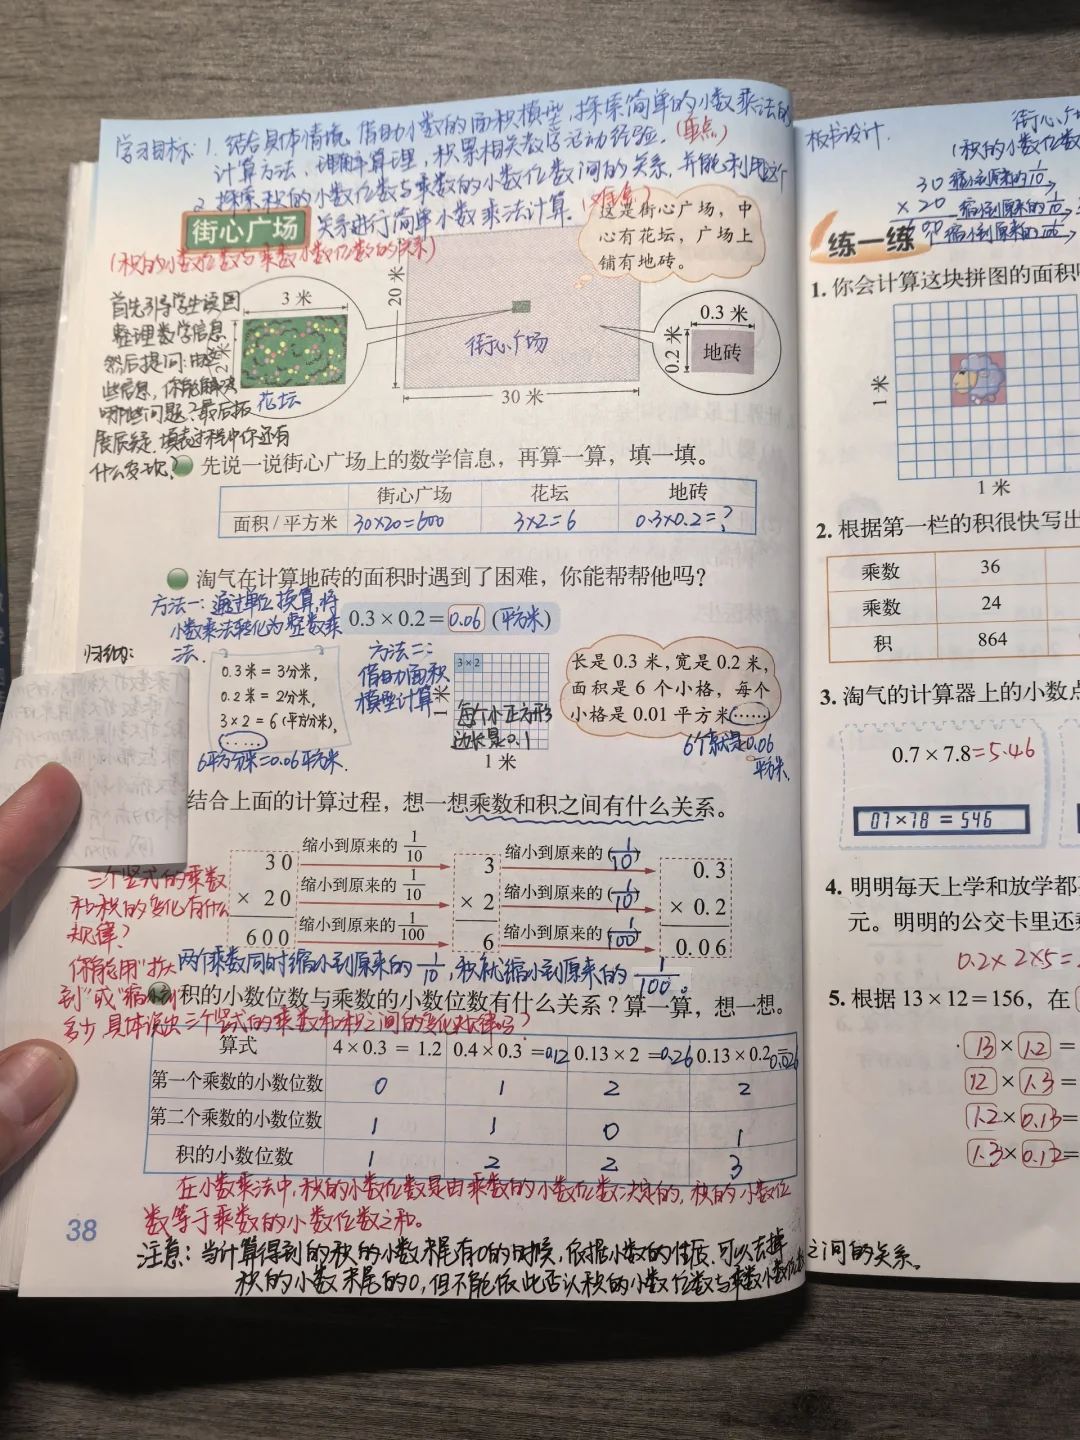 学习目标：1. 结合具体情境，借助小数的面积模型，探索简单的小数乘法的
计算方法，理解算理，积累相关数学活动经验。（重点）
2. 探索积的小数位数与乘数的小数位数间的关系，并能利用这个
关系进行简单小数乘法计算。（难点）
街心广场
（积的小数位数与乘数小数位数的关系）
这是街心广场，中
心有花坛，广场上
铺有地砖。
首先引导学生读图
整理数学信息，
然后提问：由这
些信息，你能解决
哪些问题？最后板
展质疑：填表过程中你还有
什么发现？
3 米
2米
花坛
20 米
街心广场
30 米
0.3 米
0.2 米
地砖
先说一说街心广场上的数学信息，再算一算，填一填。
街心广场 花坛 地砖
面积 / 平方米 30×20=600 3×2=6 0.3×0.2=?
淘气在计算地砖的面积时遇到了困难，你能帮帮他吗？
方法一：通过单位换算，将
小数乘法转化为整数乘
法.
0.3 × 0.2 = 0.06 (平方米)
归纳：
0.3 米 = 3分米，
0.2 米 = 2分米，
3 × 2 = 6 (平方分米)，
……
6平方分米=0.06平方米.
方法二：
借助面积
模型计算
3×2
1米
每个小正方形
边长是0.1
1 米
长是 0.3 米，宽是 0.2 米，
面积是 6 个小格，每个
小格是 0.01 平方米……
6个就是0.06
平方米.
结合上面的计算过程，想一想乘数和积之间有什么关系。
30
× 20
600
缩小到原来的 1/10
缩小到原来的 1/10
缩小到原来的 1/100
3
× 2
6
缩小到原来的 (1/10)
缩小到原来的 (1/10)
缩小到原来的 (1/100)
0.3
× 0.2
0.06
三个竖式的乘数
和积的变化有什么
规律？
你能用“扩大
到”或“缩小到”
多少 具体说出三个竖式的乘数和积之间的变化规律吗？
两个乘数同时缩小到原来的 1/10，积就缩小到原来的 1/100。
积的小数位数与乘数的小数位数有什么关系？算一算，想一想。
算式 4 × 0.3 = 1.2 0.4 × 0.3 = 0.12 0.13 × 2 = 0.26 0.13 × 0.2 = 0.026
第一个乘数的小数位数 0 1 2 2
第二个乘数的小数位数 1 1 0 1
积的小数位数 1 2 2 3
在小数乘法中，积的小数位数是由乘数的小数位数决定的，积的小数位
数等于乘数的小数位数之和。
38
注意：当计算得到的积的小数末尾有0的时候，依据小数的性质，可以去掉
积的小数末尾的0，但不能依此否认积的小数位数与乘数小数位数
之间的关系。
板书设计.
街心广
(积的小数位数
30 缩小到原来的1/10
× 20 缩小到原来的1/10
600 缩小到原来的1/100
练一练
1. 你会计算这块拼图的面积
1 米
1 米
2. 根据第一栏的积很快写出
乘数 36
乘数 24
积 864
3. 淘气的计算器上的小数点
0.7 × 7.8=5.46
07×78 = 546
4. 明明每天上学和放学都
元。明明的公交卡里还
0.2× 2×5=
5. 根据 13 × 12 = 156，在
13 × 1.2 =
12 × 1.3 =
1.2 × 0.13 =
1.3 × 0.12 =